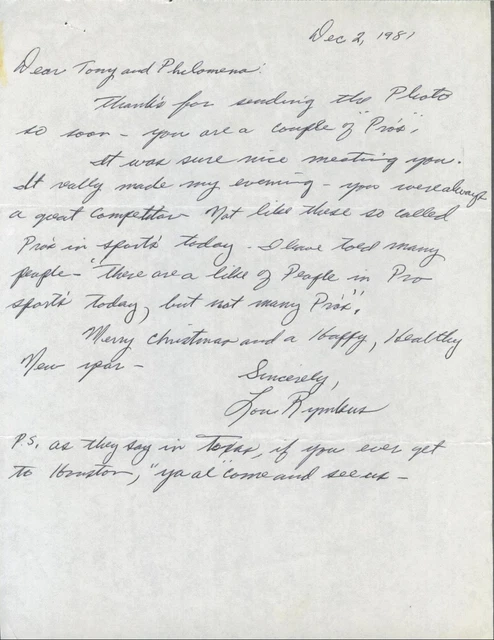 Dec 2, 1981
Dear Tony and Philomena:
Thanks for sending the Photo
so soon - you are a couple of "Pro's".
It was sure nice meeting you.
It really made my evening - you were always
a great competitor Not like these so called
Pro's in sports today - I have told many
people - "There are a like of People in Pro
sports today, but not many Pro's".
Merry Christmas and a Happy, Healthy
New year -
Sincerely,
Lou Rymkus
P.S. as they say in Texas, if you ever get
to Houston, "ya al" come and see us -